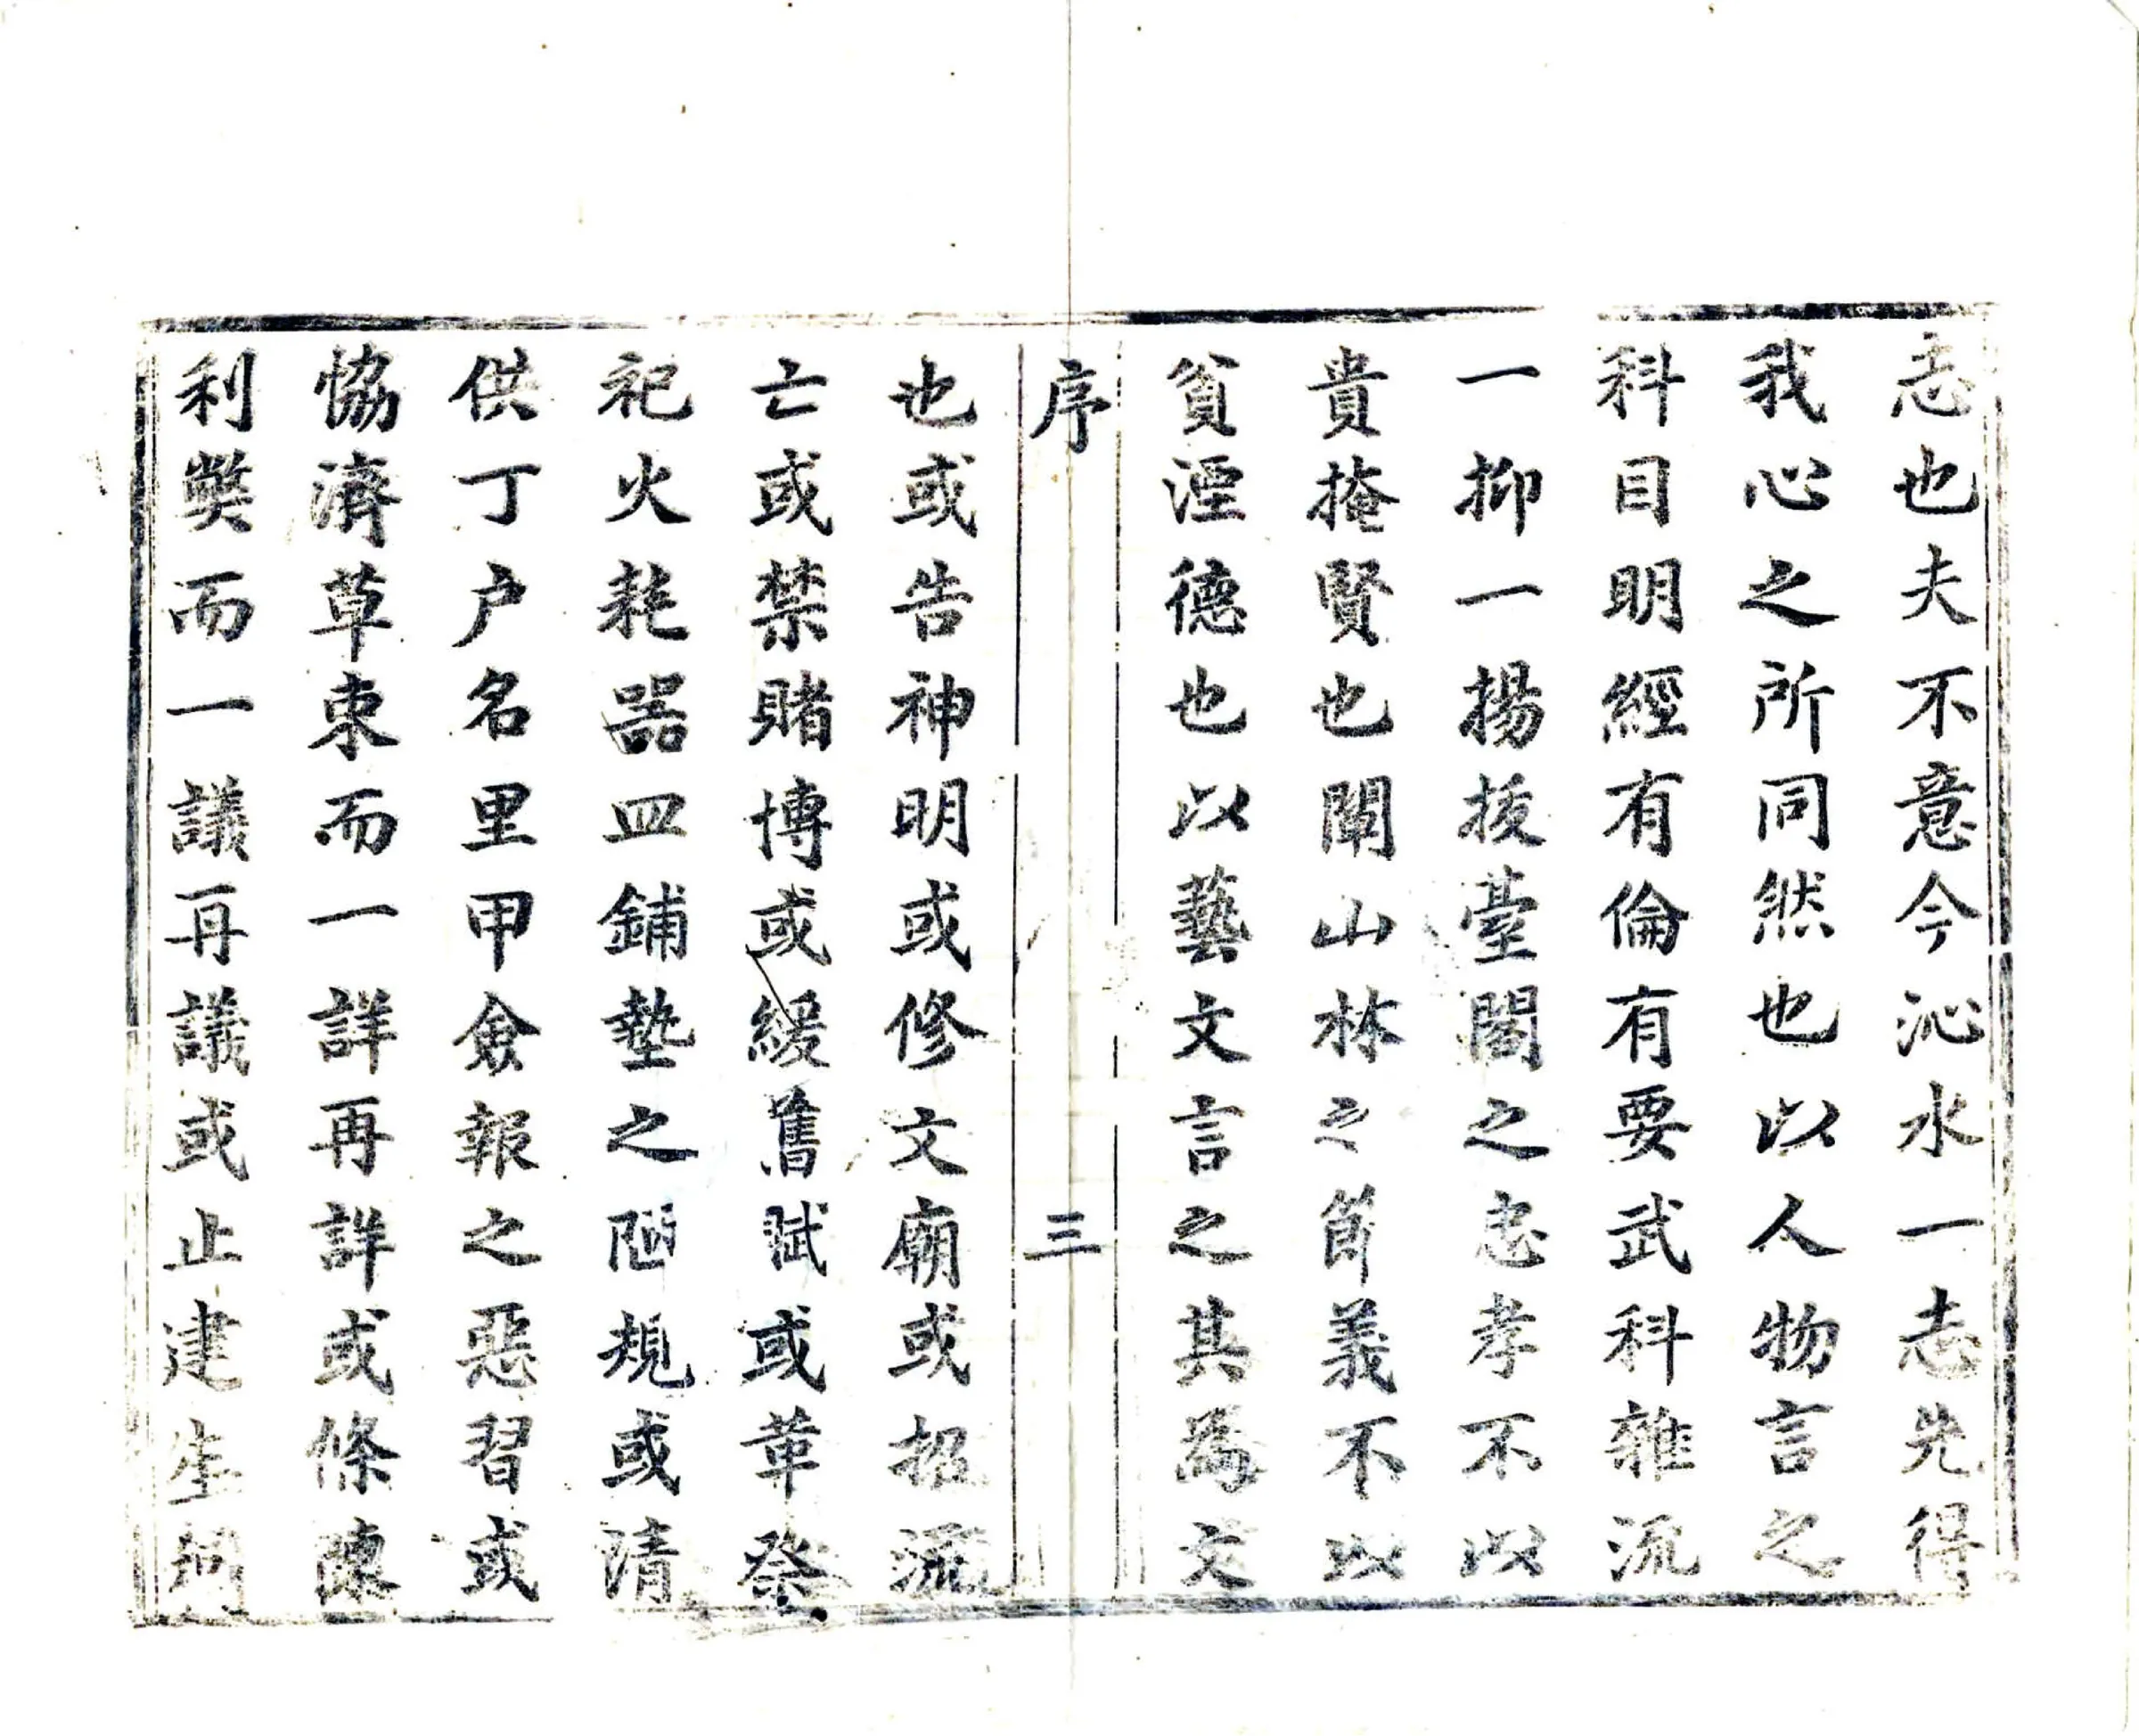 志也夫不意今沁水一志先得
我心之所同然也以人物言之
科目明經有倫有要武科雜流
一抑一揚拔臺閣之忠孝不以
貴掩賢也闡山林之節義不以
貧湮德也以藝文言之其爲文
序 三
也或告神明或修文廟或招流
亡或禁賭博或緩舊賦或革祭
祀火耗器皿鋪墊之陋規或清
供丁户名里甲僉報之惡習或
恊濟草束而一詳再詳或條陳
利獘而一議再議或止建生祠